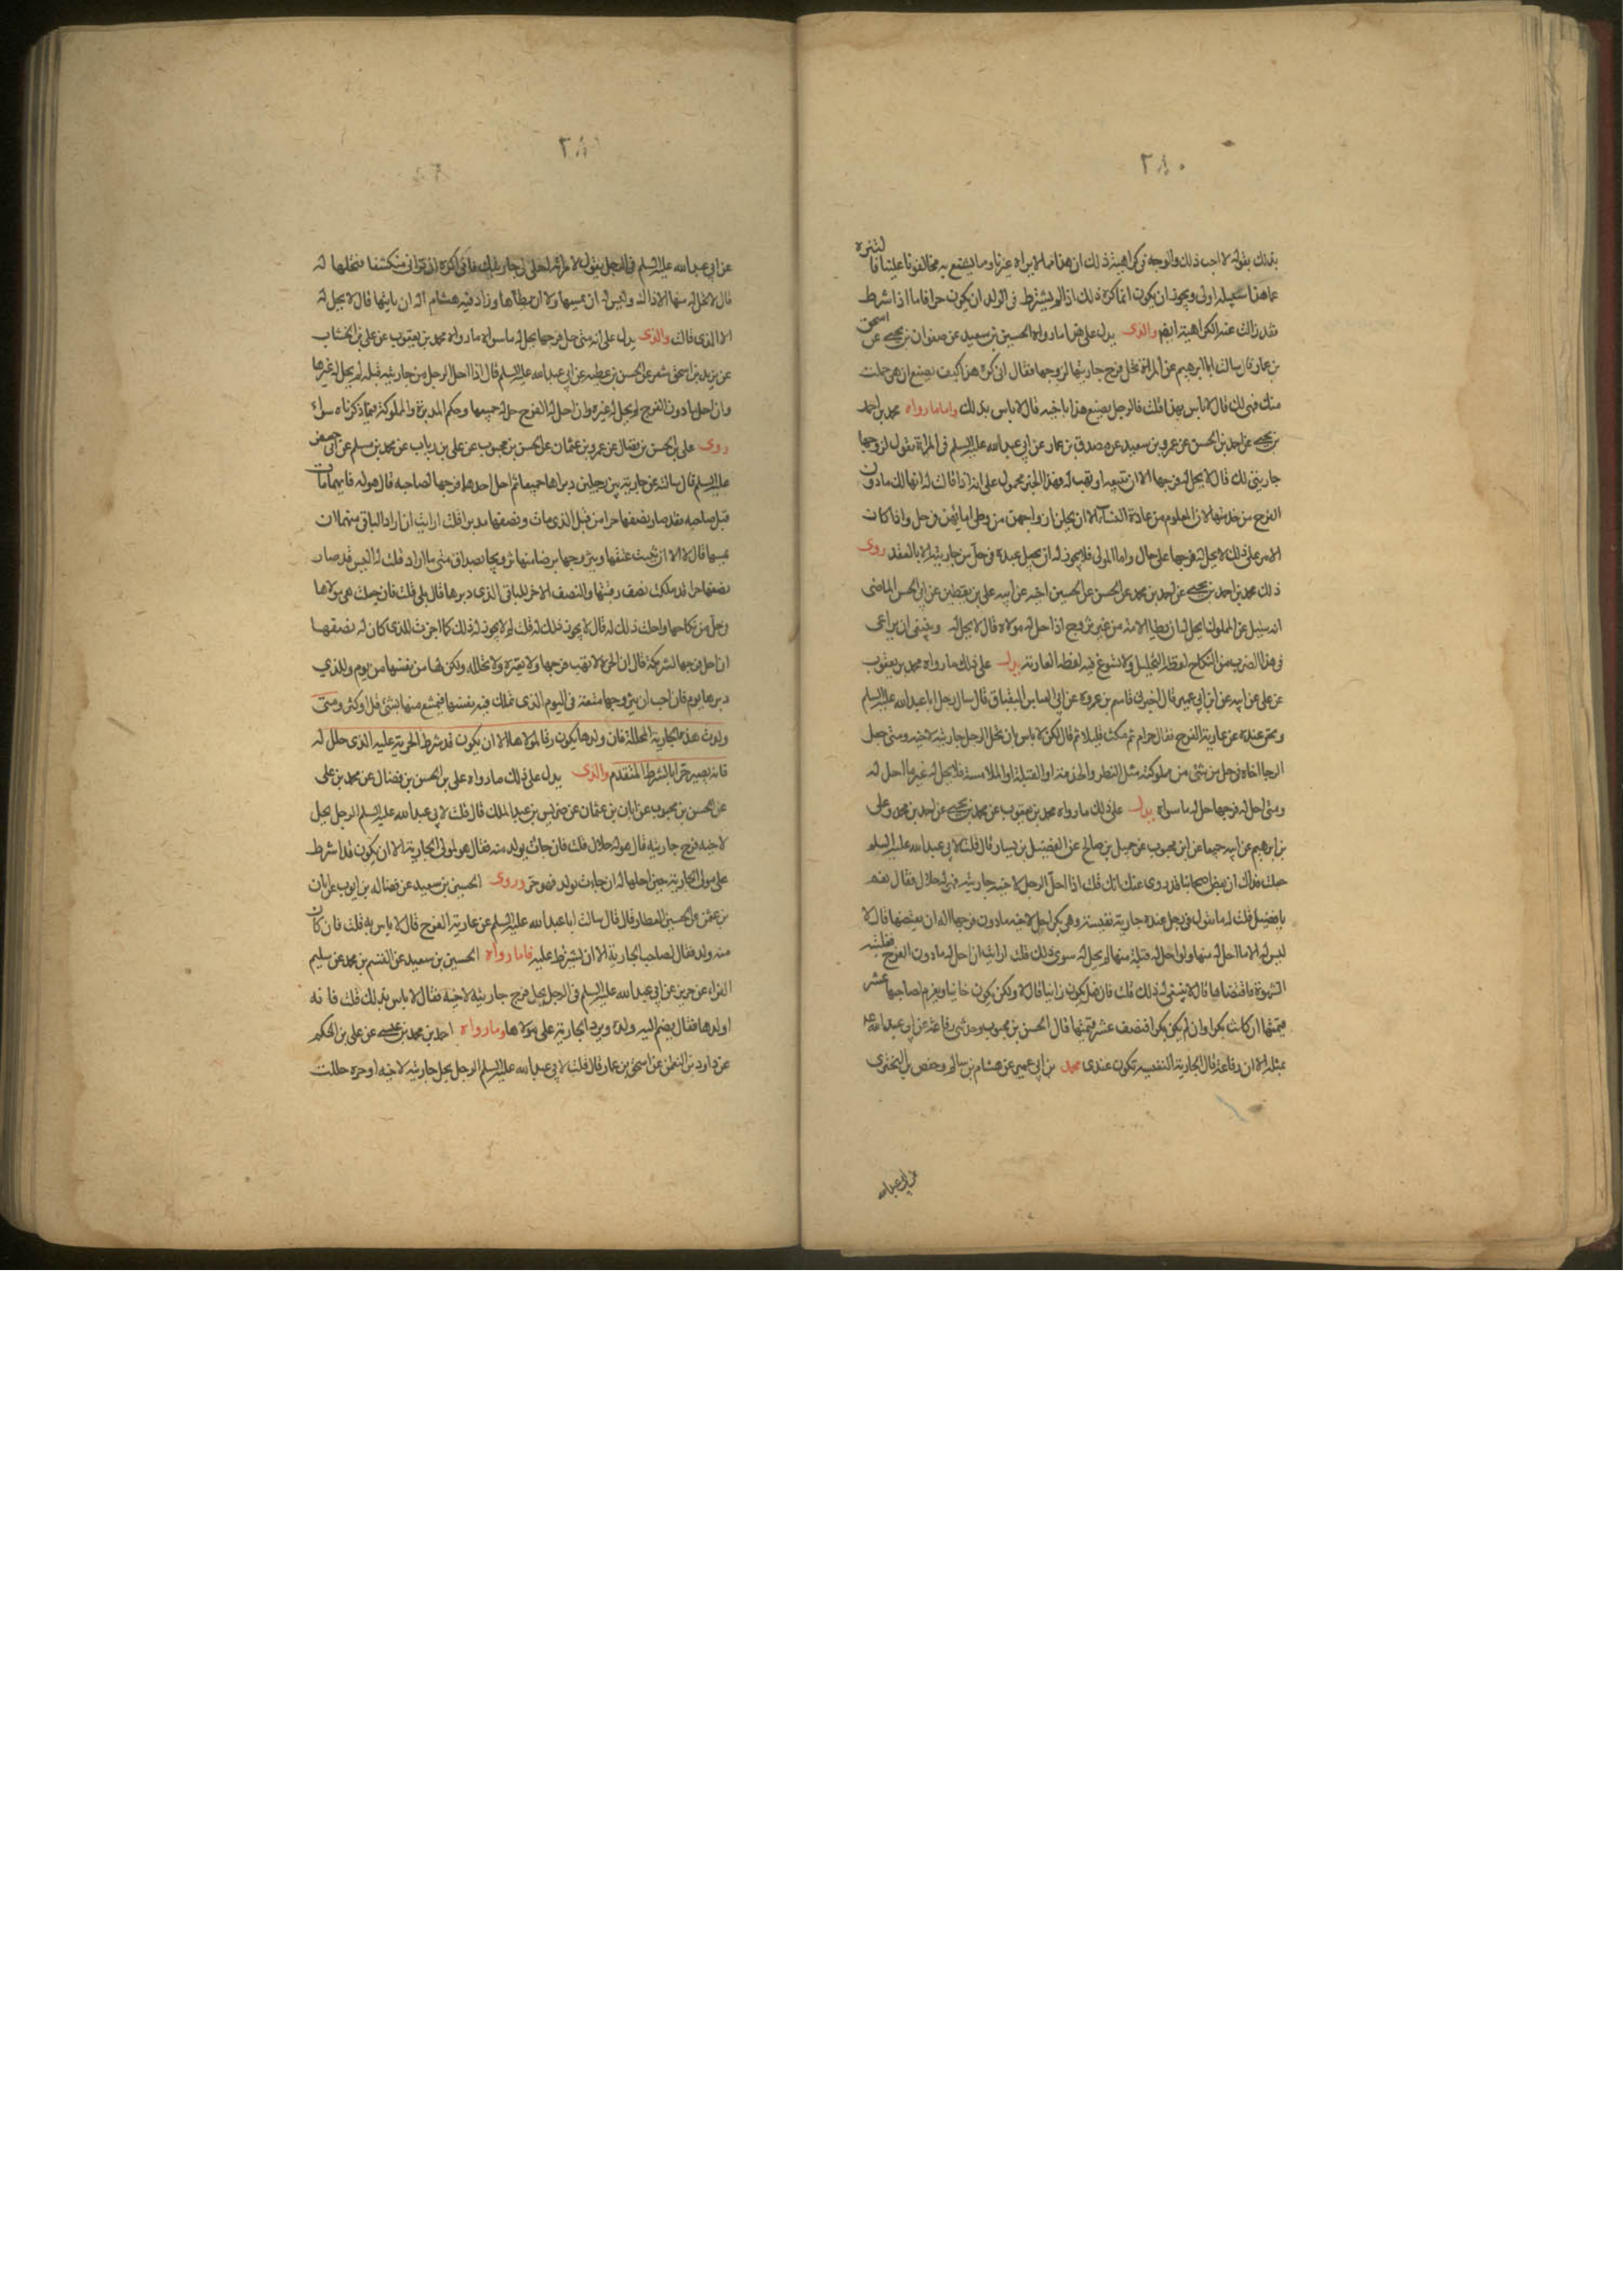 ٢٨٠
بذلك بقوله لا احب ذلك والوجه في كراهية ذلك ان هذا مما لا يراه غيرنا ومما يشنع به مخالفونا علينا فالتنزه
عما هذا سبيله اولى ويجوز ان يكون انما كره ذلك اذا لم يشترط في الولد ان يكون حرا فاما اذا شرط
فقد زالت عنه الكراهية ايضا والذى يدل على هذا ما رواه الحسين بن سعيد عن صفوان بن يحيى عن اسحق
بن عمار قال سالت ابا ابرهيم عن المراة تحل فرج جاريتها لزوجها فقال انى اكره هذا كيف تصنع ان هى حملت
منك فهى لك قال لا باس بهذا قلت فالرجل يصنع هذا باخيه قال لا باس بذلك واما ما رواه محمد بن احمد
بن يحيى عن احمد بن الحسن عن عمرو بن سعيد عن مصدق بن عمار عن ابى عبد الله عليه السلم فى المراة تقول لزوجها
جاريتى لك قال لا يحل له فرجها الا ان تبيعه او تهب له فهذا الخبر محمول على انه اذا قالت له انها لك ما دون
الفرج من خدمتها لان المعلوم من عادة النساء الا ان يجعلن ازواجهن من وطى امائهن فى حل واذا كان
الامر على ذلك لا يحل له فرجها على حال واما المولى فلا يجوز له ان يجعل عبده فى حل من جاريته الا بالعقد روى
ذلك محمد بن احمد بن يحيى عن احمد بن محمد عن الحسن عن الحسين اخيه عن ابيه على بن يقطين عن ابى الحسن الماضى
انه سئل عن المملوك ايحل له ان يطا الامة من غير تزويج اذا احل له مولاه قال لا يحل له وينبغى ان يراعى
فى هذا الضرب من النكاح لفظة التحليل ولا يسوغ فيه لفظة العارية يدل على ذلك ما رواه محمد بن يعقوب
عن على عن ابيه عن ابن ابى عمير قال اخبرنى قاسم بن عروة عن ابى العباس البقباق قال سال رجل ابا عبد الله عليه السلم
ونحن عنده عن عارية الفرج فقال حرام ثم مكث قليلا ثم قال لكن لا باس بان تحل الرجل جاريته لاخيه ومتى جعل
الرجل اخاه فى حل من شئ من مملوكته مثل النظر والخدمة او القبلة او الملامسة فلا يحل له غير ما احل له
ومتى احل له فرجها حل له ما سواه يدل على ذلك ما رواه محمد بن يعقوب عن محمد بن يحيى عن احمد بن محمد وعلى
بن ابرهيم عن ابيه جميعا عن ابن محبوب عن جميل بن صالح عن الفضيل بن يسار قال قلت لابى عبد الله عليه السلم
جعلت فداك ان بعض اصحابنا قد روى عنك انك قلت اذا احل الرجل لاخيه جاريته فهى له حلال فقال نعم
يا فضيل قلت له ما تقول فى رجل عنده جارية نفيسة وهى بكر احل لاخيه ما دون فرجها اله ان يفتضها قال لا
ليس له الا ما احل له منها ولو احل له قبلة منها لم يحل له سوى ذلك قلت ارايت ان احل له ما دون الفرج فغلبته
الشهوة فافتضها قال لا ينبغى له ذلك قلت فان فعل يكون زانيا قال لا ولكن يكون خائنا ويغرم لصاحبها عشر
قيمتها ان كانت بكرا وان لم يكن بكرا فنصف عشر قيمتها قال الحسن بن محبوب وحدثنى رفاعة عن ابى عبد الله عه
بمثله الا ان رفاعة قال الجارية النفيسة تكون عندى محمد بن ابى عمير عن هشام بن سالم وحفص بن البخترى
عن ابى عبد الله
٢٨١
عن ابى عبد الله عليه السلم فى الرجل يقول لامراته احلى لى جاريتك فانى اكره ان ترانى منكشفا فتحلها له
قال لا يحل له منها الا ذاك وليس له ان يمسها ولا ان يطاها وزاد فيه هشام اله ان ياتيها قال لا يحل له
الا الذى قالت والذى يدل على انه متى حل فرجها يحل له ما سواه ما رواه محمد بن يعقوب عن على بن الخشاب
عن يزيد بن اسحق شعر عن الحسن بن عطيه عن ابى عبد الله عليه السلم قال اذا احل الرجل من جاريته قبلة لم يحل له غيرها
وان احل ما دون الفرج لم يحل له غيره وان احل له الفرج حل له جميعها وحكم المدبرة والمملوكة فيما ذكرناه سواء
روى على بن الحسن بن فضال عن عمرو بن عثمان عن الحسن بن محبوب عن على بن رياب عن محمد بن مسلم عن ابى جعفر
عليه السلم قال سالته عن جارية بين رجلين دبراها جميعا ثم احل احدهما فرجها لصاحبه قال هو له فايهما مات
قبل صاحبه فقد صار نصفها حرا من قبل الذى مات ونصفها مدبرا قلت ارايت ان اراد الباقى منهما ان
يمسها قال لا الا ان يثبت عتقها ويتزوجها برضا منها تزويجا بصداق متى ما اراد قلت له اليس قد صار
نصفها حرا قد ملكت نصف رقبتها والنصف الاخر للباقى الذى دبرها قال بلى قلت فان جعلت هى مولاها
فى حل من نكاحها واحلت ذلك له قال لا يجوز ذلك له قلت لم لا يجوز له ذلك كما اجزت للذى كان له نصفها
ان احل فرجها لشريكه قال ان الحرة لا تهب فرجها ولا تعيره ولا تحلله ولكن لها من نفسها من يوم وللذي
دبرها يوم فان احب ان يتزوجها متعة فى اليوم الذى تملك فيه نفسها فيتمتع منها بشئ قل او كثر ومتى
ولدت هذه الجارية المحللة فان ولدها يكون رقا لمولاها الا ان يكون قد شرط الحرية عليه الذى حلل له
فانه يصير حرا بالشرط المتقدم والذى يدل على ذلك ما رواه على بن الحسن بن فضال عن محمد بن على
عن الحسن بن محبوب عن ابان بن عثمان عن ضريس بن عبد الملك قال قلت لابى عبد الله عليه السلم الرجل يحل
لاخيه فرج جاريته قال هو له حلال قلت فان جاءت بولد منه فقال هو لمولى الجارية الا ان يكون قد اشرط
على مولى الجارية حين احلها له ان جاءت بولد فهو حر وروى الحسين بن سعيد عن فضاله بن ايوب عن ابان
بن عثمن عن الحسين العطار قال قال سالت ابا عبد الله عليه السلم عن عارية الفرج قال لا باس به قلت فان كان
منه ولد فقال لصاحب الجارية الا ان يشترط عليه فاما رواه الحسين بن سعيد عن القسم بن محمد عن سليم
الفراء عن حريز عن ابى عبد الله عليه السلم فى الرجل يحل فرج جاريته لاخيه فقال لا باس بذلك قلت فانه
اولدها فقال يضم اليه ولده ويرد الجارية على مولاها وما رواه احمد بن محمد بن عيسى عن على بن الحكم
عن داود بن النعمن عن اسحق بن عمار قال قلت لابى عبد الله عليه السلم الرجل يحل جاريته لاخيه او حرة حللت